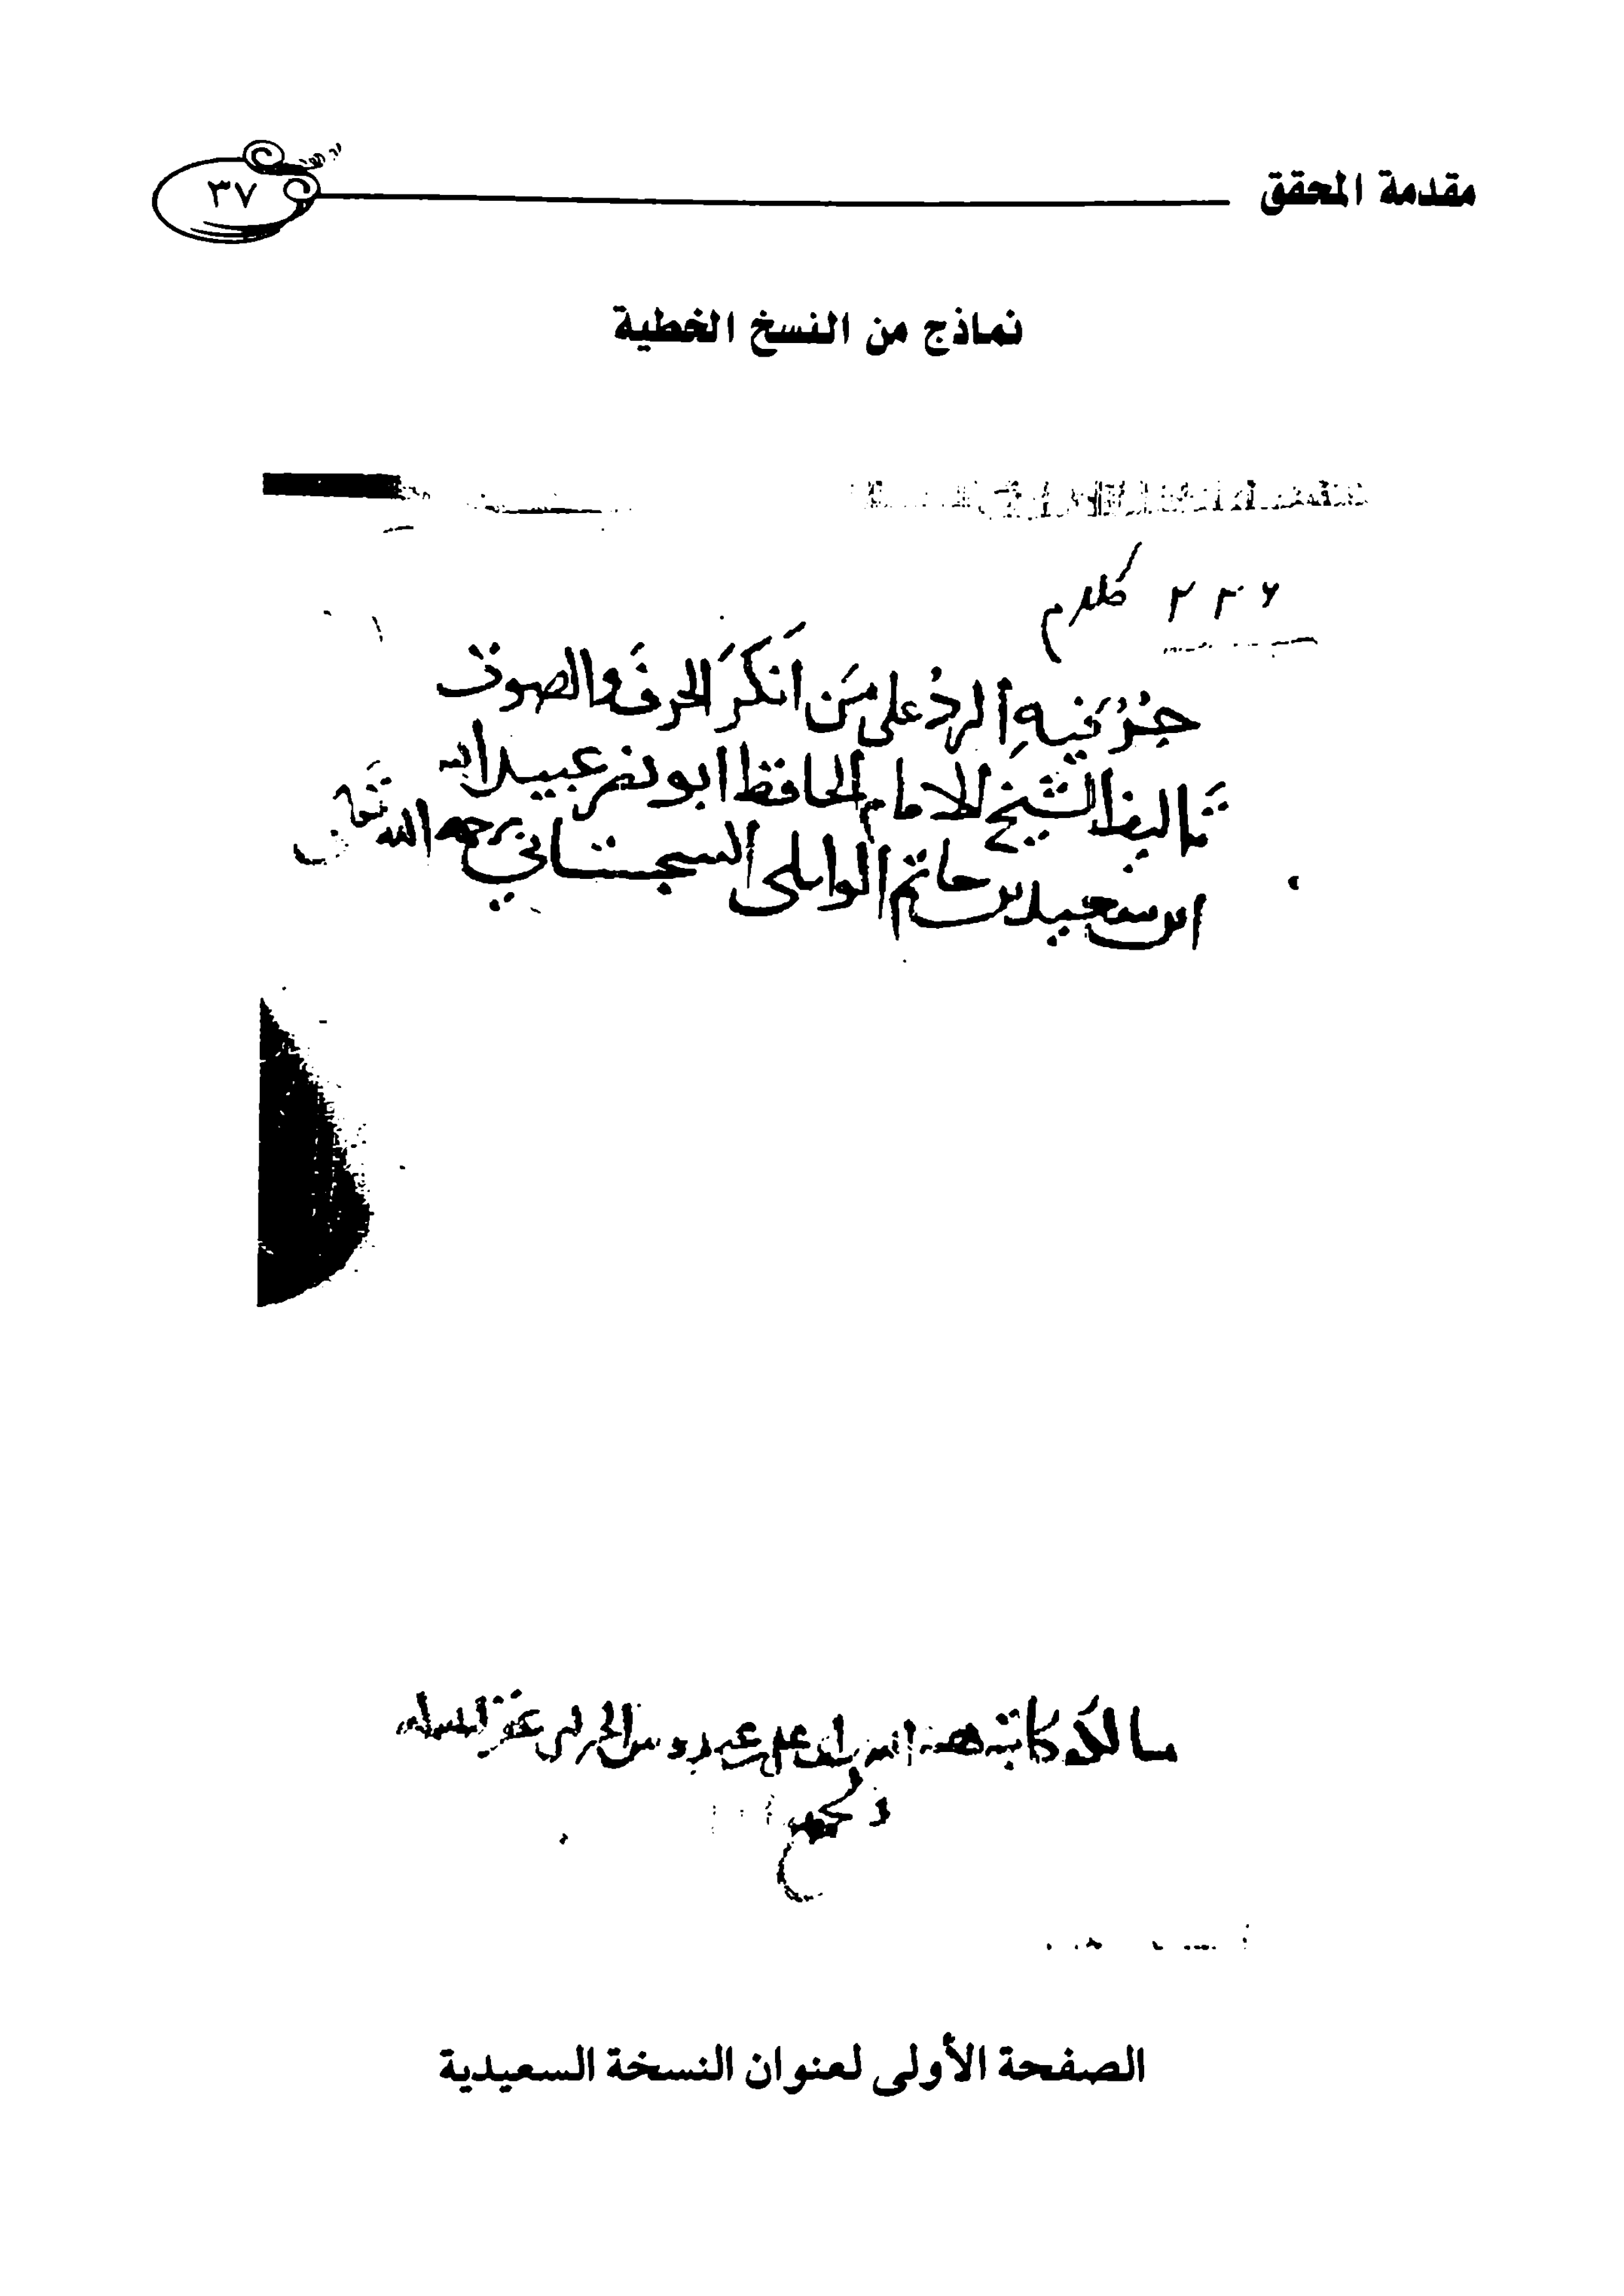 مقدمة المحقق
٣٧
نماذج من النسخ الخطية
كلام
جزء فيه الرد على من انكر الحرف والصوت
تاليف الشيخ الامام الحافظ ابو نصر عبيد الله
ابن سعيد بن حاتم الوايلى السجستاني رحمه الله تعالى
مالكه كاتبه
الصفحة الأولى لعنوان النسخة السعيدية